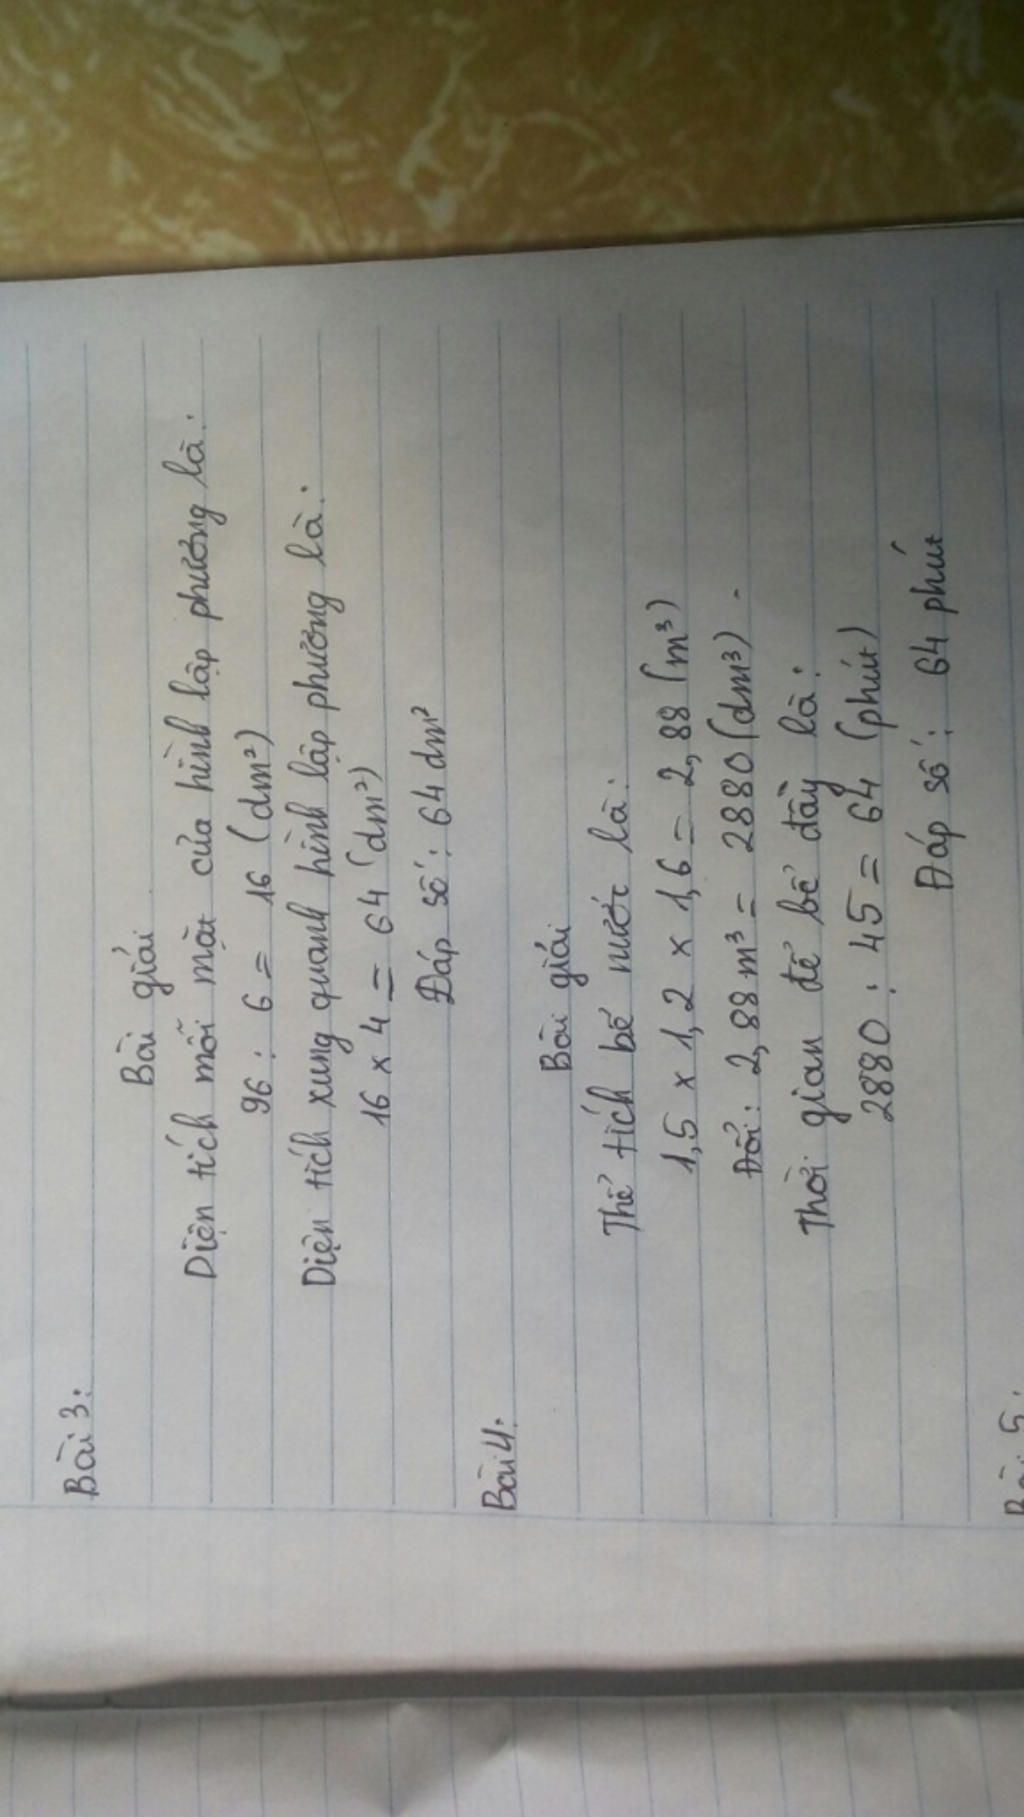 Bài 3:
Bài giải
Diện tích mỗi mặt của hình lập phương là:
96 : 6 = 16 (dm²)
Diện tích xung quanh hình lập phương là:
16 x 4 = 64 (dm²)
Đáp số: 64 dm²
Bài 4:
Bài giải
Thể tích bể nước là:
1,5 x 1,2 x 1,6 = 2,88 (m³)
Đổi: 2,88 m³ = 2880 (dm³).
Thời gian để bể đầy là:
2880 : 45 = 64 (phút)
Đáp số: 64 phút
Bài 5: